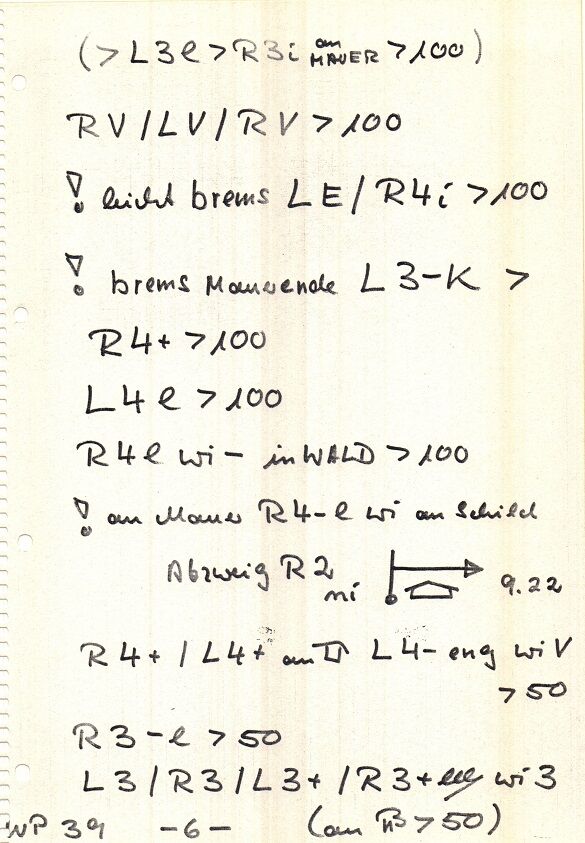 (> L3e > R3i am MAUER > 100)
RV / LV / RV > 100
! leicht brems LE / R4i > 100
! brems Mauerende L3-K >
R4+ > 100
L4e > 100
R4e wi- in WALD > 100
! an Mauer R4-e wi an Schild
Abzweig R2 ni 9.22
R4+ / L4+ an L4- eng wi V
> 50
R3-e > 50
L3 / R3 / L3+ / R3+ wi 3
WP 39 -6- (am > 50)